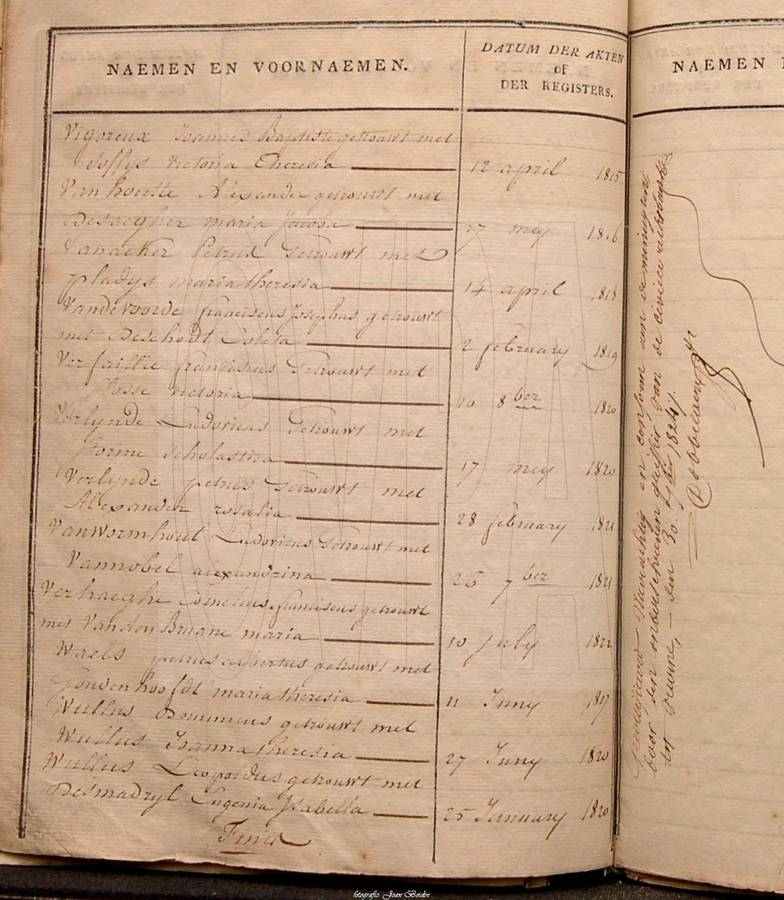 NAEMEN EN VOORNAEMEN.
DATUM DER AKTEN
OF
DER REGISTERS.
Vigoreux Joannes Baptiste getrouwt met
Soffys victoria Theresia 12 april 1815
Van houtte Alexander getrouwt met
Desaegher maria Jacoba 27 mey 1816
Vanacker Petrus Getrouwt met
pladys maria theresia 14 april 1818
Vandevoorde franciscus Josephus getrouwt
met Deschodt Coleta 2 february 1819
Verfaillie franciscus Getrouwt met
Josse victoria 10 8ber 1820
Verlynde Ludovicus Getrouwt met
Storme scholastica 17 mey 1820
Verlynde petrus Getrouwt met
Alexander rosalia 28 february 1821
Vanwormhout Ludovicus Getrouwt met
Vannobel alexandrina 26 7ber 1821
Verhaeghe Cornelius franciscus getrouwt
met Vanden Bruane maria 10 July 1822
Waels petrus albertus getrouwt met
Goudenhoofdt maria theresia 11 Juny 1817
Wullus Dominicus getrouwt met
Wullus Joanna theresia 27 Juny 1820
Wullus Leopoldus getrouwt met
Desmadryl Eugenia Isabella 25 January 1820
Finis
NAEMEN
Gecollationeerd Waerachtig en conform aen de minuyten
door den onderschreven greffier van de civiele rechtbank
tot veurne, den 30. 1824.
fotografie: Joan Borden